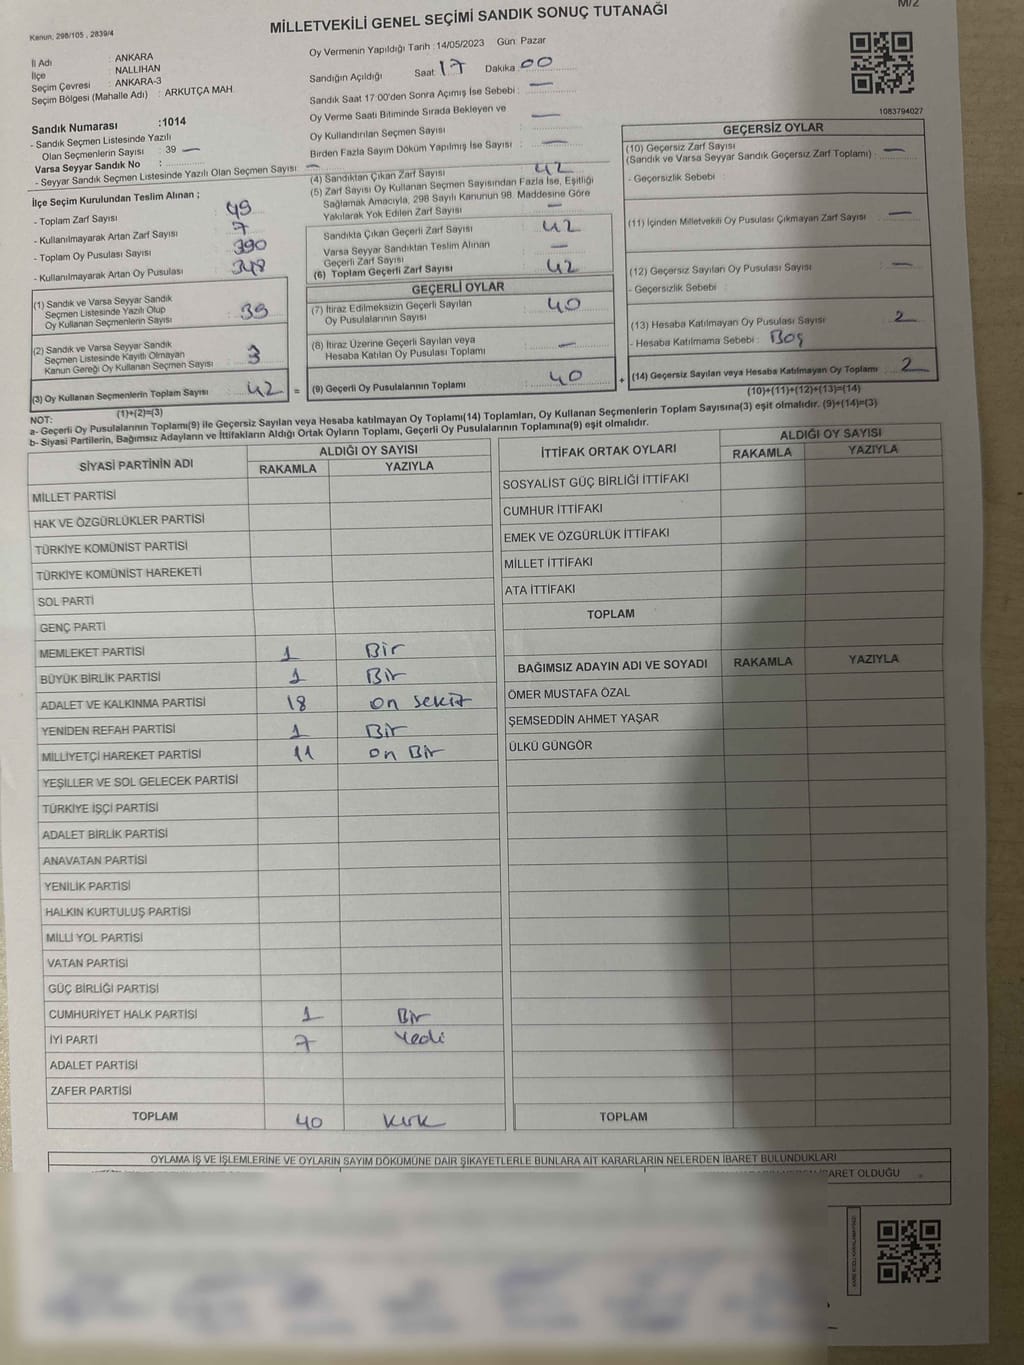 M/2
Kanun, 298/105 , 2839/4
MİLLETVEKİLİ GENEL SEÇİMİ SANDIK SONUÇ TUTANAĞI
İl Adı : ANKARA
İlçe : NALLIHAN
Seçim Çevresi : ANKARA-3
Seçim Bölgesi (Mahalle Adı) : ARKUTÇA MAH.
Oy Vermenin Yapıldığı Tarih : 14/05/2023 Gün: Pazar
Sandığın Açıldığı Saat 17 Dakika 00
Sandık Saat 17:00'den Sonra Açımış İse Sebebi : —
Oy Verme Saati Bitiminde Sırada Bekleyen ve
Oy Kullandırılan Seçmen Sayısı : —
Birden Fazla Sayım Döküm Yapılmış İse Sayısı : —
1083794027
Sandık Numarası :1014
- Sandık Seçmen Listesinde Yazılı
Olan Seçmenlerin Sayısı : 39 —
Varsa Seyyar Sandık No :
- Seyyar Sandık Seçmen Listesinde Yazılı Olan Seçmen Sayısı : —
İlçe Seçim Kurulundan Teslim Alınan ;
- Toplam Zarf Sayısı : 49
- Kullanılmayarak Artan Zarf Sayısı : 7
- Toplam Oy Pusulası Sayısı : 390
- Kullanılmayarak Artan Oy Pusulası : 348
(1) Sandık ve Varsa Seyyar Sandık
Seçmen Listesinde Yazılı Olup
Oy Kullanan Seçmenlerin Sayısı : 39
(2) Sandık ve Varsa Seyyar Sandık
Seçmen Listesinde Kayıtlı Olmayan
Kanun Gereği Oy Kullanan Seçmen Sayısı : 3
(3) Oy Kullanan Seçmenlerin Toplam Sayısı : 42 =
(1)+(2)=(3)
(4) Sandıktan Çıkan Zarf Sayısı : 42
(5) Zarf Sayısı Oy Kullanan Seçmen Sayısından Fazla İse, Eşitliği
Sağlamak Amacıyla, 298 Sayılı Kanunun 98. Maddesine Göre
Yakılarak Yok Edilen Zarf Sayısı : —
Sandıkta Çıkan Geçerli Zarf Sayısı : 42
Varsa Seyyar Sandıktan Teslim Alınan
Geçerli Zarf Sayısı : —
(6) Toplam Geçerli Zarf Sayısı : 42
GEÇERLİ OYLAR
(7) İtiraz Edilmeksizin Geçerli Sayılan
Oy Pusulalarının Sayısı : 40
(8) İtiraz Üzerine Geçerli Sayılan veya
Hesaba Katılan Oy Pusulası Toplamı : —
(9) Geçerli Oy Pusulalarının Toplamı : 40 +
GEÇERSİZ OYLAR
(10) Geçersiz Zarf Sayısı
(Sandık ve Varsa Seyyar Sandık Geçersiz Zarf Toplamı) : —
- Geçersizlik Sebebi :
(11) İçinden Milletvekili Oy Pusulası Çıkmayan Zarf Sayısı : —
(12) Geçersiz Sayılan Oy Pusulası Sayısı : —
- Geçersizlik Sebebi :
(13) Hesaba Katılmayan Oy Pusulası Sayısı : 2
- Hesaba Katılmama Sebebi : Boş
(14) Geçersiz Sayılan veya Hesaba Katılmayan Oy Toplamı : 2
(10)+(11)+(12)+(13)=(14)
NOT:
a- Geçerli Oy Pusulalarının Toplamı(9) ile Geçersiz Sayılan veya Hesaba katılmayan Oy Toplamı(14) Toplamları, Oy Kullanan Seçmenlerin Toplam Sayısına(3) eşit olmalıdır. (9)+(14)=(3)
b- Siyasi Partilerin, Bağımsız Adayların ve İttifakların Aldığı Ortak Oyların Toplamı, Geçerli Oy Pusulalarının Toplamına(9) eşit olmalıdır.
SİYASİ PARTİNİN ADI ALDIĞI OY SAYISI
RAKAMLA YAZIYLA
MİLLET PARTİSİ
HAK VE ÖZGÜRLÜKLER PARTİSİ
TÜRKİYE KOMÜNİST PARTİSİ
TÜRKİYE KOMÜNİST HAREKETİ
SOL PARTİ
GENÇ PARTİ
MEMLEKET PARTİSİ 1 Bir
BÜYÜK BİRLİK PARTİSİ 1 Bir
ADALET VE KALKINMA PARTİSİ 18 on sekiz
YENİDEN REFAH PARTİSİ 1 Bir
MİLLİYETÇİ HAREKET PARTİSİ 11 on Bir
YEŞİLLER VE SOL GELECEK PARTİSİ
TÜRKİYE İŞÇİ PARTİSİ
ADALET BİRLİK PARTİSİ
ANAVATAN PARTİSİ
YENİLİK PARTİSİ
HALKIN KURTULUŞ PARTİSİ
MİLLİ YOL PARTİSİ
VATAN PARTİSİ
GÜÇ BİRLİĞİ PARTİSİ
CUMHURİYET HALK PARTİSİ 1 Bir
İYİ PARTİ 7 Yedi
ADALET PARTİSİ
ZAFER PARTİSİ
TOPLAM 40 Kırk
İTTİFAK ORTAK OYLARI ALDIĞI OY SAYISI
RAKAMLA YAZIYLA
SOSYALİST GÜÇ BİRLİĞİ İTTİFAKI
CUMHUR İTTİFAKI
EMEK VE ÖZGÜRLÜK İTTİFAKI
MİLLET İTTİFAKI
ATA İTTİFAKI
TOPLAM
BAĞIMSIZ ADAYIN ADI VE SOYADI RAKAMLA YAZIYLA
ÖMER MUSTAFA ÖZAL
ŞEMSEDDİN AHMET YAŞAR
ÜLKÜ GÜNGÖR
TOPLAM
OYLAMA İŞ VE İŞLEMLERİNE VE OYLARIN SAYIM DÖKÜMÜNE DAİR ŞİKAYETLERLE BUNLARA AİT KARARLARIN NELERDEN İBARET BULUNDUKLARI
BARET OLDUĞU